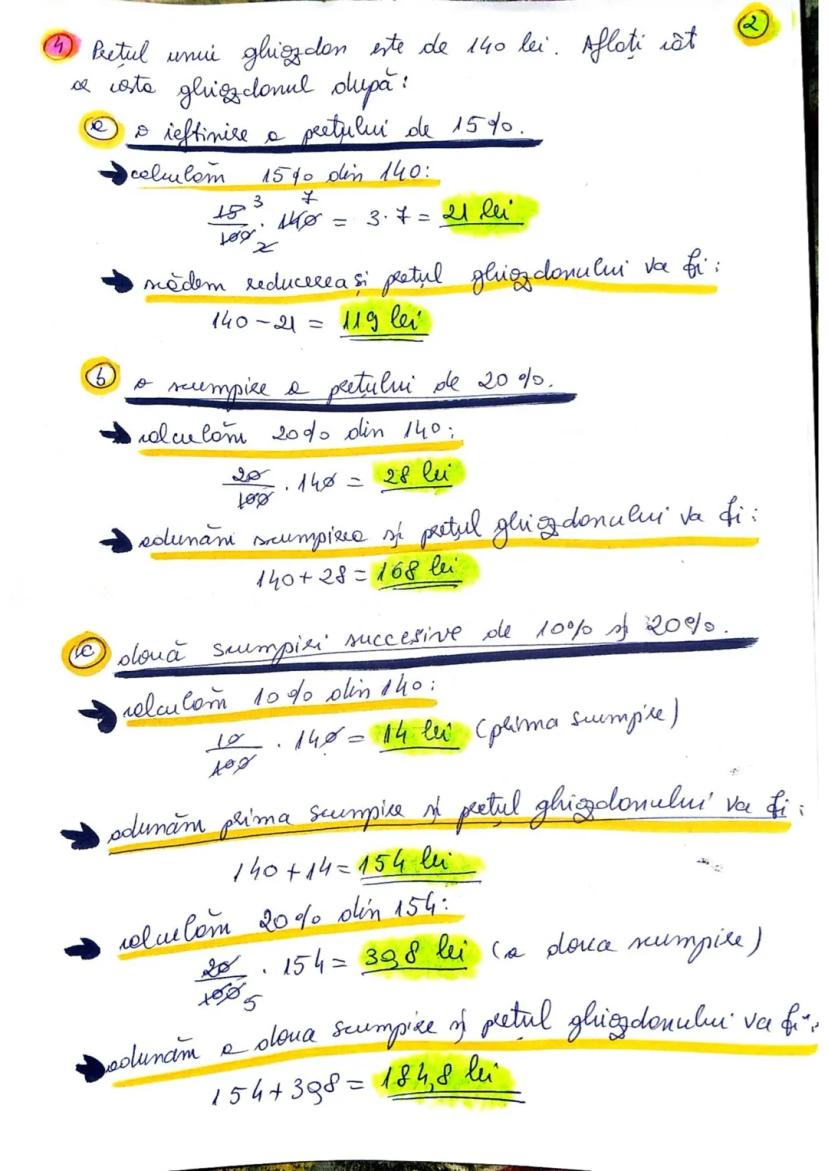 2
4 Prețul unui ghiozdan este de 140 lei. Aflați cât
va costa ghiozdanul după:
a o ieftinire a prețului de 15%.
→ calculăm 15% din 140:
15/100 3 2 · 140 7 = 3·7 = 21 lei
→ scădem reducerea și prețul ghiozdanului va fi:
140 - 21 = 119 lei
b o scumpire a prețului de 20%.
→ calculăm 20% din 140:
20/100 · 140 = 28 lei
→ adunăm scumpirea și prețul ghiozdanului va fi:
140 + 28 = 168 lei
c două scumpiri succesive de 10% și 20%.
→ calculăm 10% din 140:
10/100 · 140 = 14 lei (prima scumpire)
→ adunăm prima scumpire și prețul ghiozdanului va fi:
140 + 14 = 154 lei
→ calculăm 20% din 154:
20/100 5 · 154 = 30,8 lei (a doua scumpire)
→ adunăm a doua scumpire și prețul ghiozdanului va fi:
154 + 30,8 = 184,8 lei